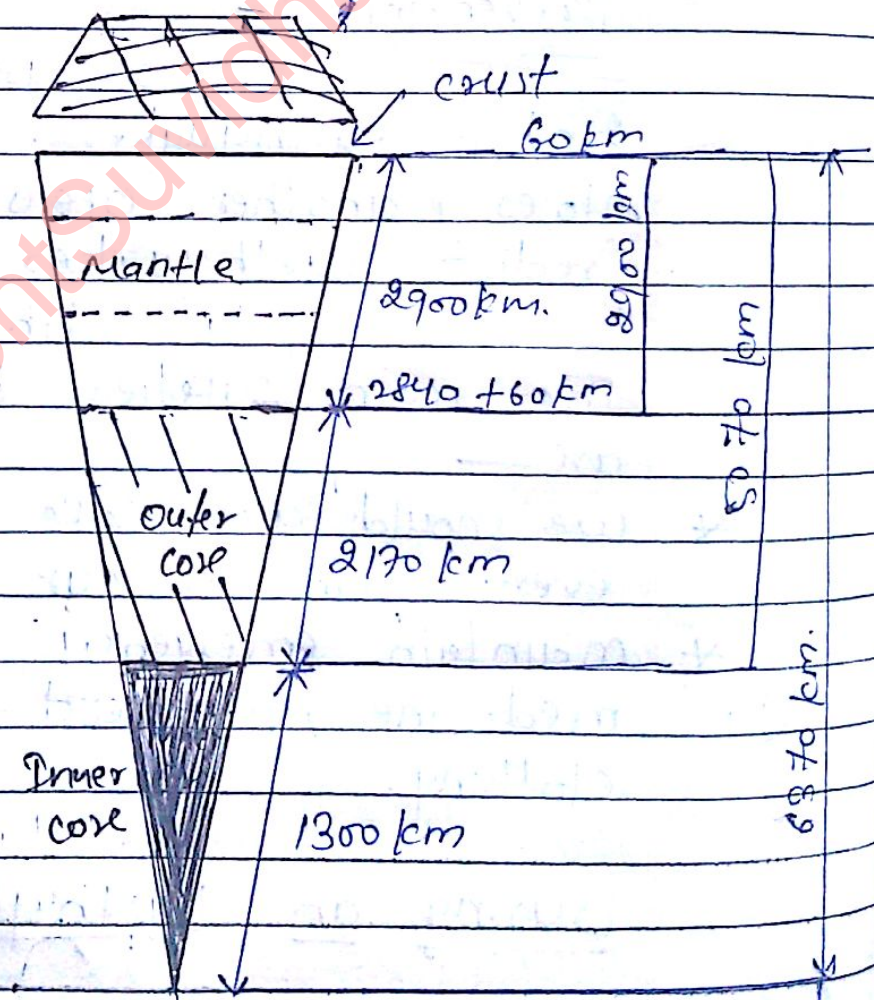 crust
60km
Mantle
2900km.
2900 km
2840 +60km
5070 km
Outer
core
2170 km
6370 km.
Inner
core
1300 km
ntSuvidh